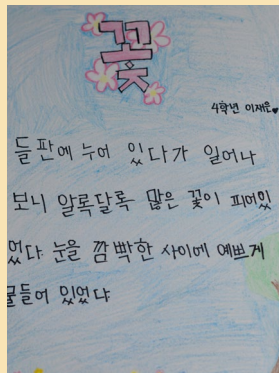 꽃
4학년 이재은♥
들판에 누어 있다가 일어나
보니 알록달록 많은 꽃이 피어있
었다. 눈을 깜빡한 사이에 예쁘게
물들어 있었다